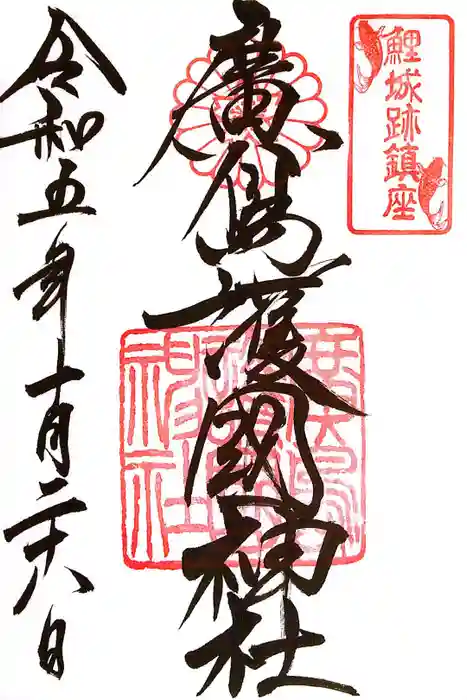 鯉城跡鎮座
廣島護國神社
令和五年十月二十八日